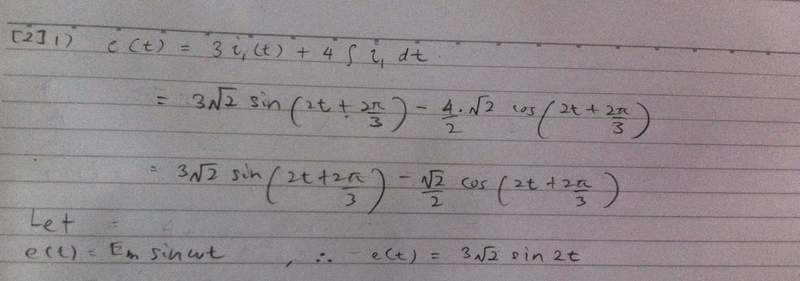 [2] 1) e(t) = 3 i₁(t) + 4 ∫ i₁ dt
= 3√2 sin (2t + 2π/3) - 4·√2/2 cos (2t + 2π/3)
= 3√2 sin (2t + 2π/3) - √2/2 cos (2t + 2π/3)
Let =
e(t) = Em sin ωt , ∴ e(t) = 3√2 sin 2t